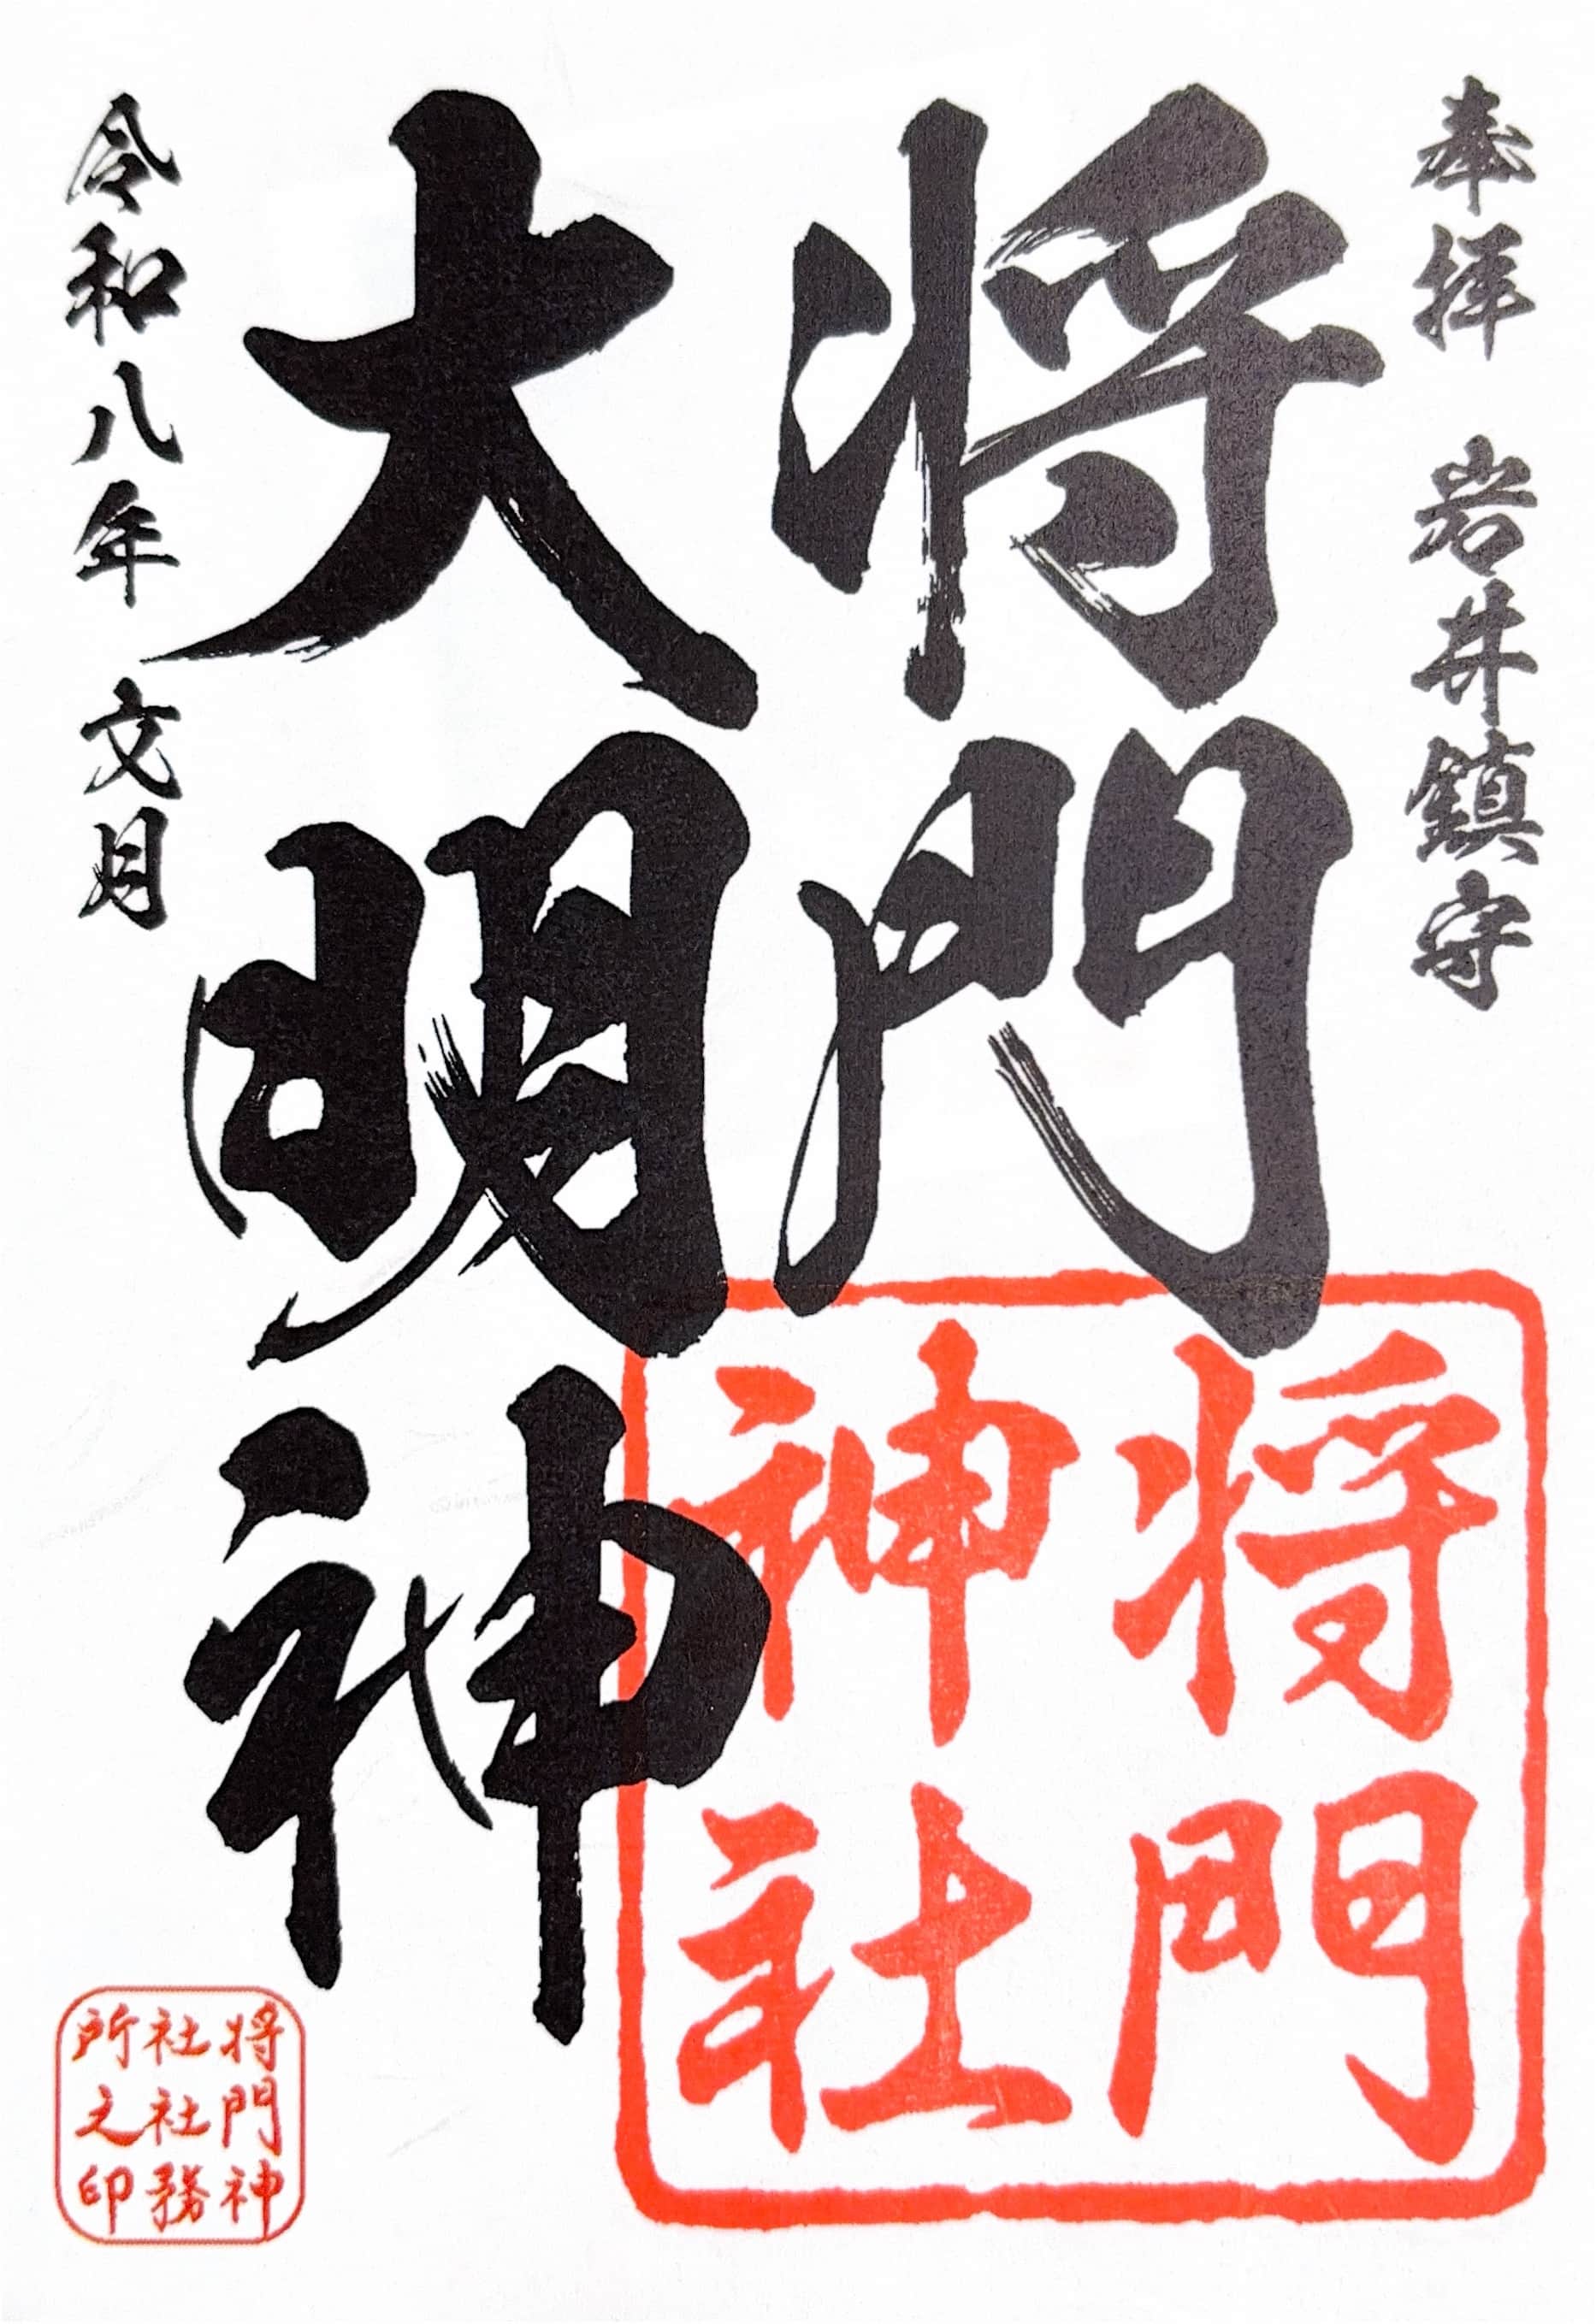 奉拝 岩井鎮守
将門
大明神
令和八年 文月
将門
神社
将門神
社社務
所之印